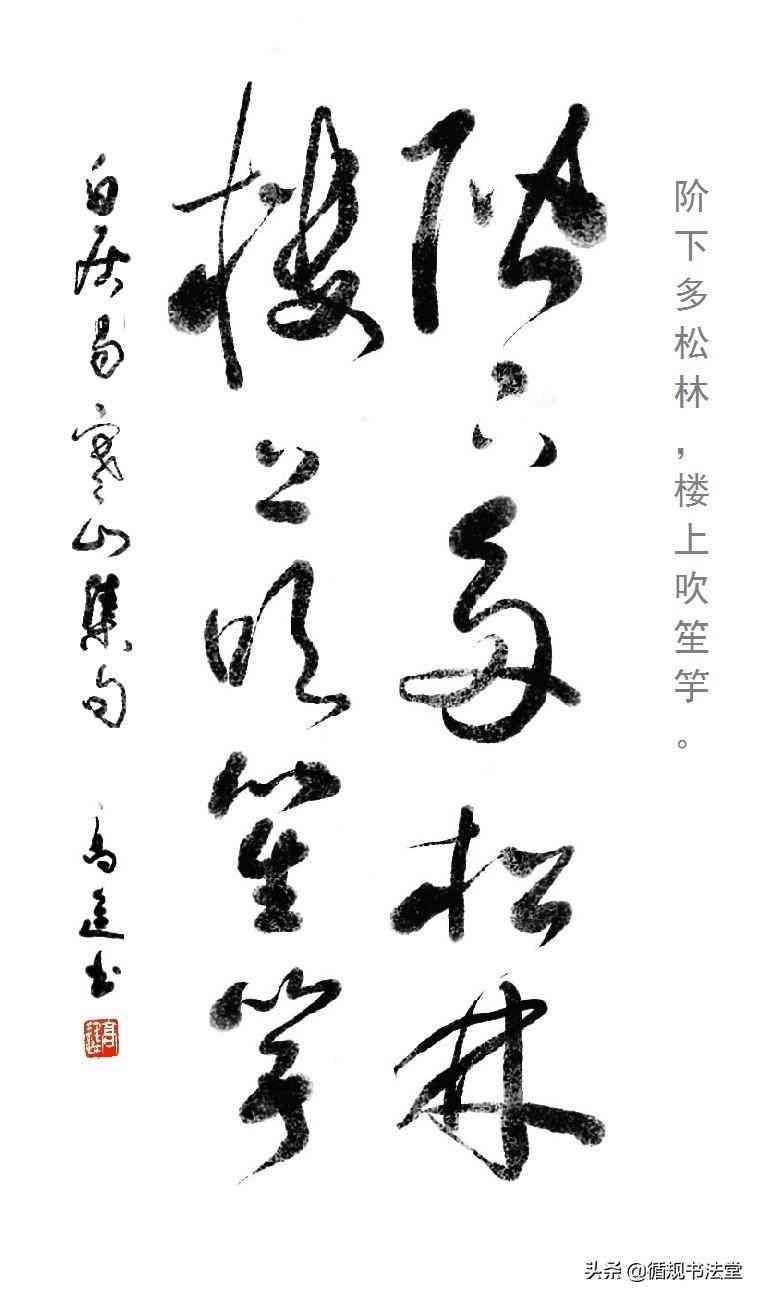 阶下多松林，楼上吹笙竽。
階下多松林
樓上吹笙竽
白居易寒山集句 高廷书
头条 @循规书法堂